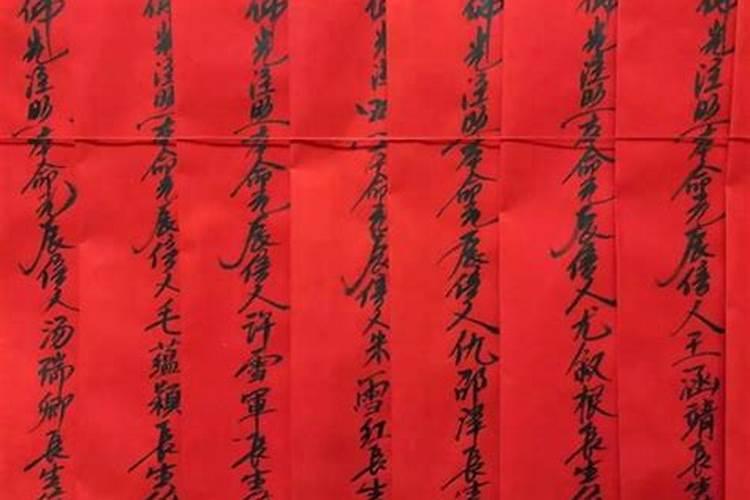 佛光注照本命元辰信人王涵晴長生
佛光注照本命元辰信人尤叙根長生
佛光注照本命元辰信人仇邵洋長生
佛光注照本命元辰信人朱雪红長生
佛光注照本命元辰信人许雪軍長生
佛光注照本命元辰信人毛蕴颖長生
佛光注照本命元辰信人汤瑞卿長生